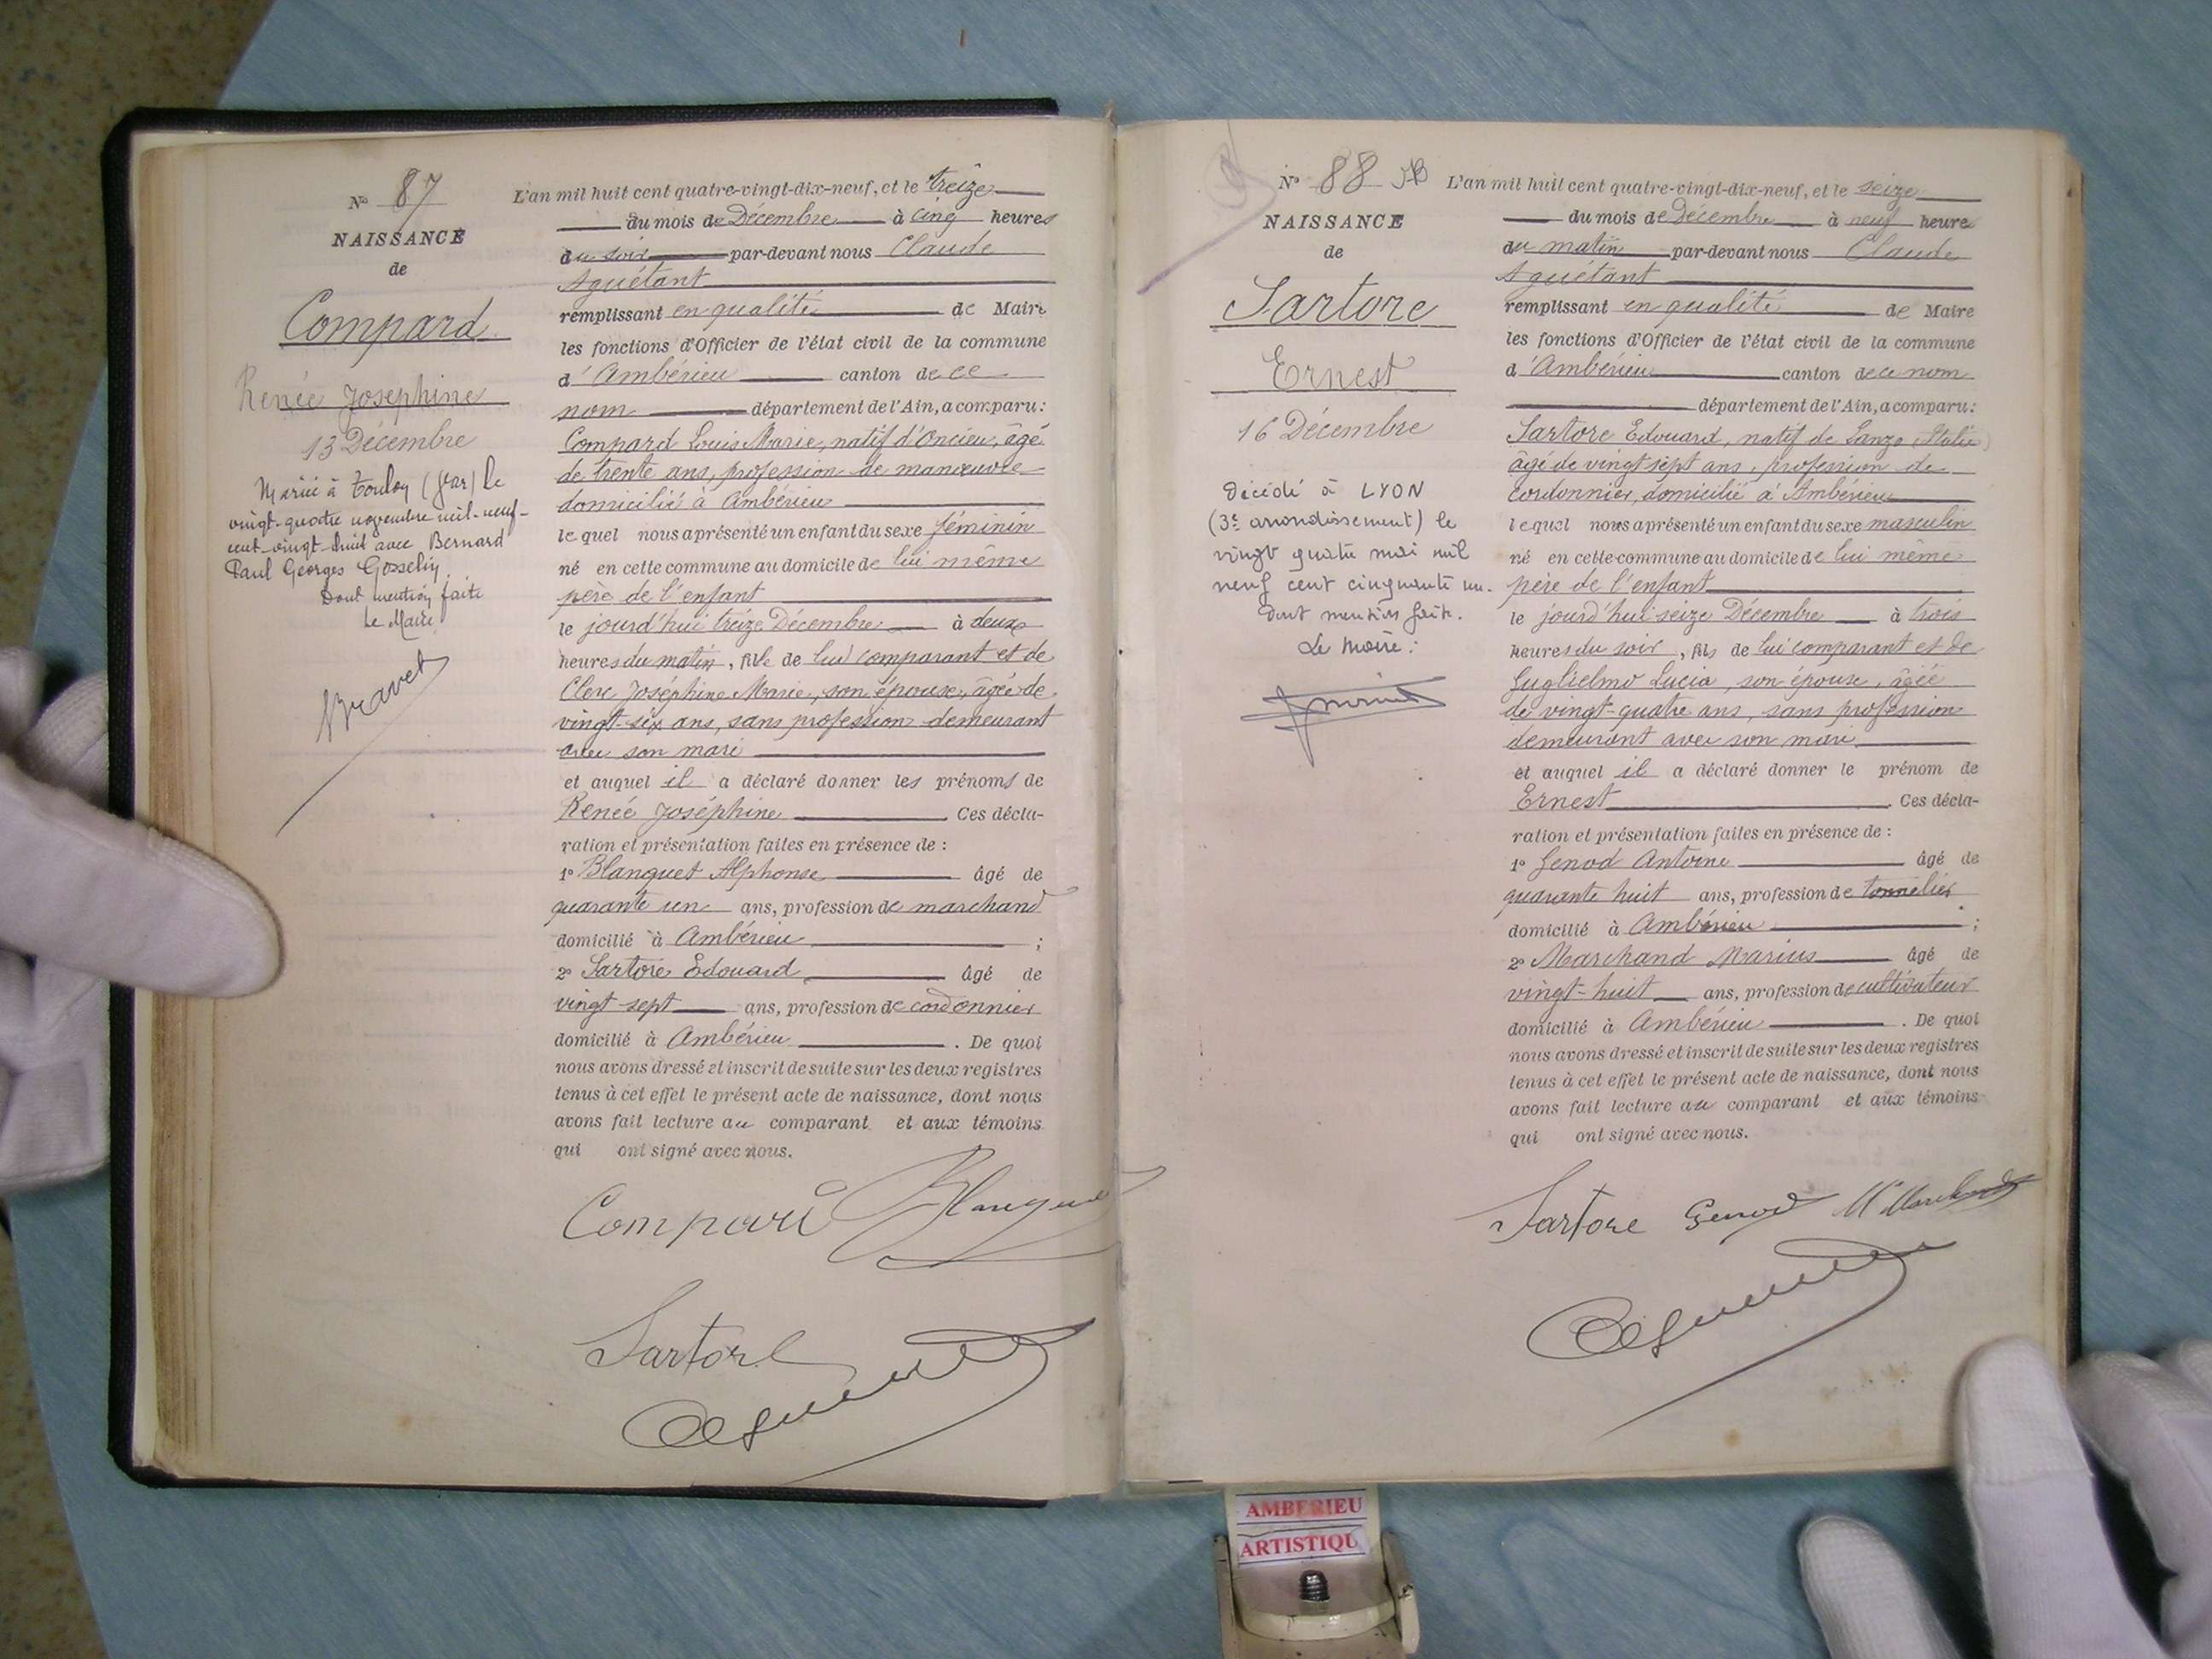 N° 87
NAISSANCE
de
Compard
Renée Joséphine
13 Décembre
Mariée à Toulon (Var) le
vingt-quatre novembre mil-neuf-
cent-vingt-huit avec Bernard
Paul Georges Gosselin.
Dont mention faite
Le Maire
Bravet
L'an mil huit cent quatre-vingt-dix-neuf, et le treize
du mois de Décembre à cinq heures
du soir par-devant nous Claude
Aguétant
remplissant en qualité de Maire
les fonctions d'Officier de l'état civil de la commune
d'Ambérieu canton de ce
nom département de l'Ain, a comparu :
Compard Louis Marie, natif d'Oncieu, âgé
de trente ans, profession de manœuvre
domicilié à Ambérieu
lequel nous a présenté un enfant du sexe féminin
né en cette commune au domicile de lui même
père de l'enfant
le jourd'hui treize Décembre à deux
heures du matin, fille de lui comparant et de
Clerc Joséphine Marie, son épouse, âgée de
vingt-six ans, sans profession demeurant
avec son mari
et auquel il a déclaré donner les prénoms de
Renée Joséphine Ces décla-
ration et présentation faites en présence de :
1° Blanquet Alphonse âgé de
quarante un ans, profession de marchand
domicilié à Ambérieu ;
2° Sartore Edouard âgé de
vingt sept ans, profession de cordonnier
domicilié à Ambérieu . De quoi
nous avons dressé et inscrit de suite sur les deux registres
tenus à cet effet le présent acte de naissance, dont nous
avons fait lecture au comparant et aux témoins
qui ont signé avec nous.
Compard Blanquet
Sartore
N° 88
NAISSANCE
de
Sartore
Ernest
16 Décembre
Décédé à LYON
(3e arrondissement) le
vingt quatre mai mil
neuf cent cinquante un.
Dont mention faite.
Le Maire :
L'an mil huit cent quatre-vingt-dix-neuf, et le seize
du mois de Décembre à neuf heure
du matin par-devant nous Claude
Aguétant
remplissant en qualité de Maire
les fonctions d'Officier de l'état civil de la commune
d'Ambérieu canton de ce nom
département de l'Ain, a comparu :
Sartore Edouard, natif de Lanzo (Italie)
âgé de vingt sept ans, profession de
cordonnier, domicilié à Ambérieu
lequel nous a présenté un enfant du sexe masculin
né en cette commune au domicile de lui même
père de l'enfant
le jourd'hui seize Décembre à trois
heures du soir, fils de lui comparant et de
Guglielmo Lucia, son épouse, âgée
de vingt-quatre ans, sans profession
demeurant avec son mari
et auquel il a déclaré donner le prénom de
Ernest . Ces décla-
ration et présentation faites en présence de :
1° Genod Antoine âgé de
quarante huit ans, profession de tonnelier
domicilié à Ambérieu ;
2° Marchand Marius âgé de
vingt-huit ans, profession de cultivateur
domicilié à Ambérieu . De quoi
nous avons dressé et inscrit de suite sur les deux registres
tenus à cet effet le présent acte de naissance, dont nous
avons fait lecture au comparant et aux témoins
qui ont signé avec nous.
Sartore Genod M Marchand
AMBERIEU
ARTISTIQU